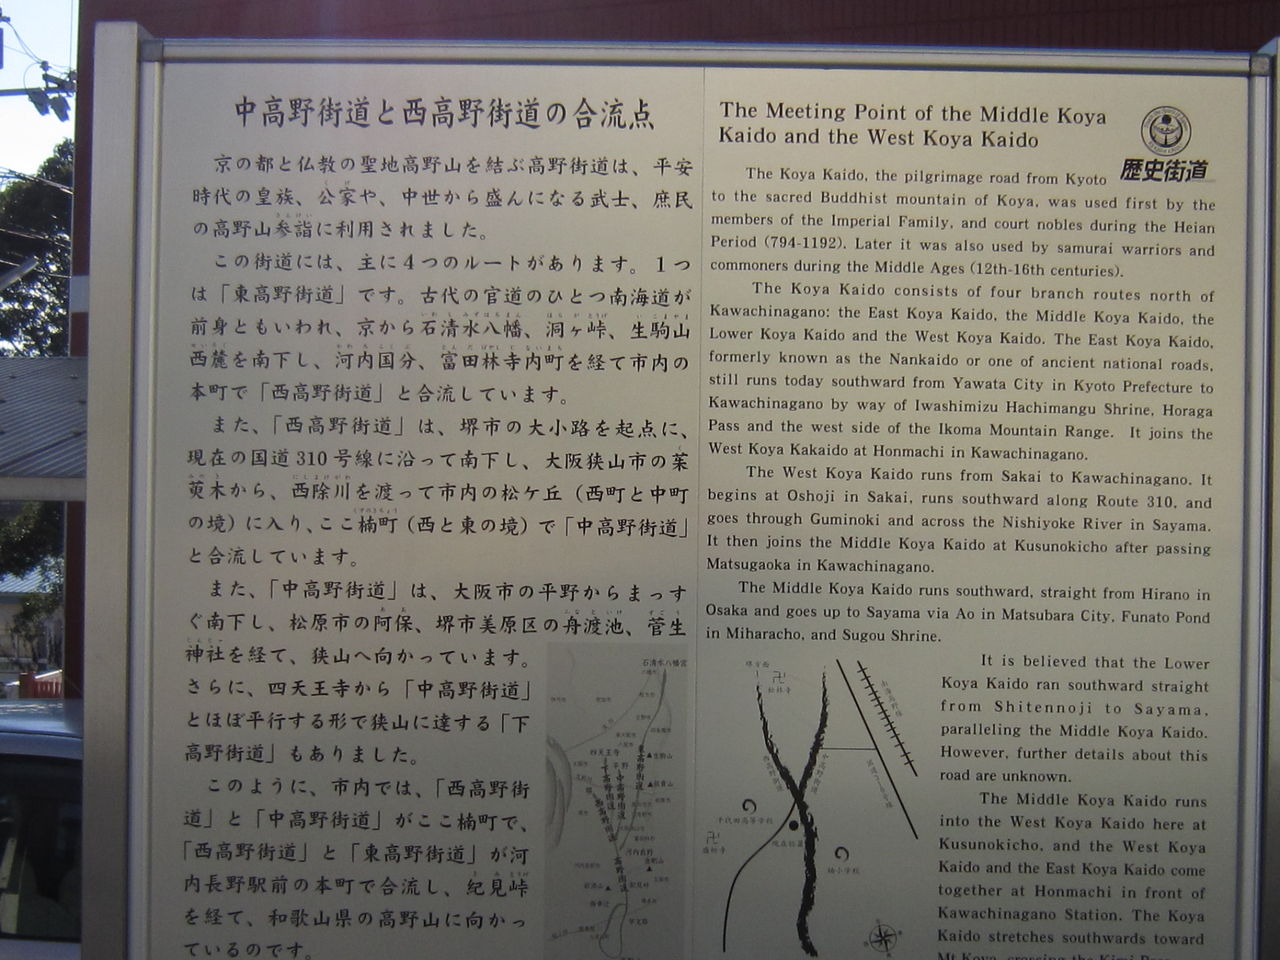 中高野街道と西高野街道の合流点
京の都と仏教の聖地高野山を結ぶ高野街道は、平安
時代の皇族、公家や、中世から盛んになる武士、庶民
の高野山参詣に利用されました。
この街道には、主に4つのルートがあります。1つ
は「東高野街道」です。古代の官道のひとつ南海道が
前身ともいわれ、京から石清水八幡、洞ヶ峠、生駒山
西麓を南下し、河内国分、富田林寺内町を経て市内の
本町で「西高野街道」と合流しています。
また、「西高野街道」は、堺市の大小路を起点に、
現在の国道310号線に沿って南下し、大阪狭山市の茱
萸木から、西除川を渡って市内の松ケ丘（西町と中町
の境）に入り、ここ楠町（西と東の境）で「中高野街道」
と合流しています。
また、「中高野街道」は、大阪市の平野からまっす
ぐ南下し、松原市の阿保、堺市美原区の舟渡池、菅生
神社を経て、狭山へ向かっています。
さらに、四天王寺から「中高野街道」
とほぼ平行する形で狭山に達する「下
高野街道」もありました。
このように、市内では、「西高野街
道」と「中高野街道」がここ楠町で、
「西高野街道」と「東高野街道」が河
内長野駅前の本町で合流し、紀見峠
を経て、和歌山県の高野山に向かっ
ているのです。
The Meeting Point of the Middle Koya
Kaido and the West Koya Kaido
歴史街道
The Koya Kaido, the pilgrimage road from Kyoto
to the sacred Buddhist mountain of Koya, was used first by the
members of the Imperial Family, and court nobles during the Heian
Period (794-1192). Later it was also used by samurai warriors and
commoners during the Middle Ages (12th-16th centuries).
The Koya Kaido consists of four branch routes north of
Kawachinagano: the East Koya Kaido, the Middle Koya Kaido, the
Lower Koya Kaido and the West Koya Kaido. The East Koya Kaido,
formerly known as the Nankaido or one of ancient national roads,
still runs today southward from Yawata City in Kyoto Prefecture to
Kawachinagano by way of Iwashimizu Hachimangu Shrine, Horaga
Pass and the west side of the Ikoma Mountain Range. It joins the
West Koya Kakaido at Honmachi in Kawachinagano.
The West Koya Kaido runs from Sakai to Kawachinagano. It
begins at Oshoji in Sakai, runs southward along Route 310, and
goes through Guminoki and across the Nishiyoke River in Sayama.
It then joins the Middle Koya Kaido at Kusunokicho after passing
Matsugaoka in Kawachinagano.
The Middle Koya Kaido runs southward, straight from Hirano in
Osaka and goes up to Sayama via Ao in Matsubara City, Funato Pond
in Miharacho, and Sugou Shrine.
It is believed that the Lower
Koya Kaido ran southward straight
from Shitennoji to Sayama,
paralleling the Middle Koya Kaido.
However, further details about this
road are unknown.
The Middle Koya Kaido runs
into the West Koya Kaido here at
Kusunokicho, and the West Koya
Kaido and the East Koya Kaido come
together at Honmachi in front of
Kawachinagano Station. The Koya
Kaido stretches southwards toward
石清水八幡宮
四天王寺
平野
東高野街道
中高野街道
下高野街道
西高野街道
高野街道
千代田高等学校
現在位置
楠小学校
西高野街道
中高野街道